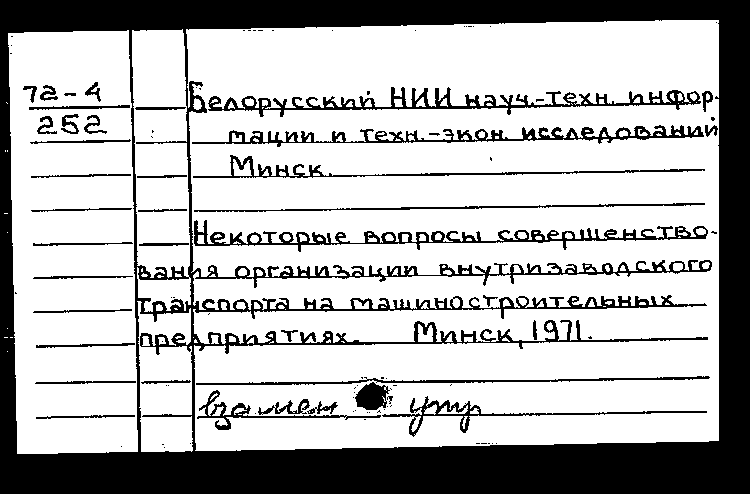 72-4
252
Белорусский НИИ науч.-техн. инфор-
мации и техн.-экон. исследований
Минск.
Некоторые вопросы совершенство-
вания организации внутризаводского
транспорта на машиностроительных
предприятиях. Минск, 1971.
взамен утр